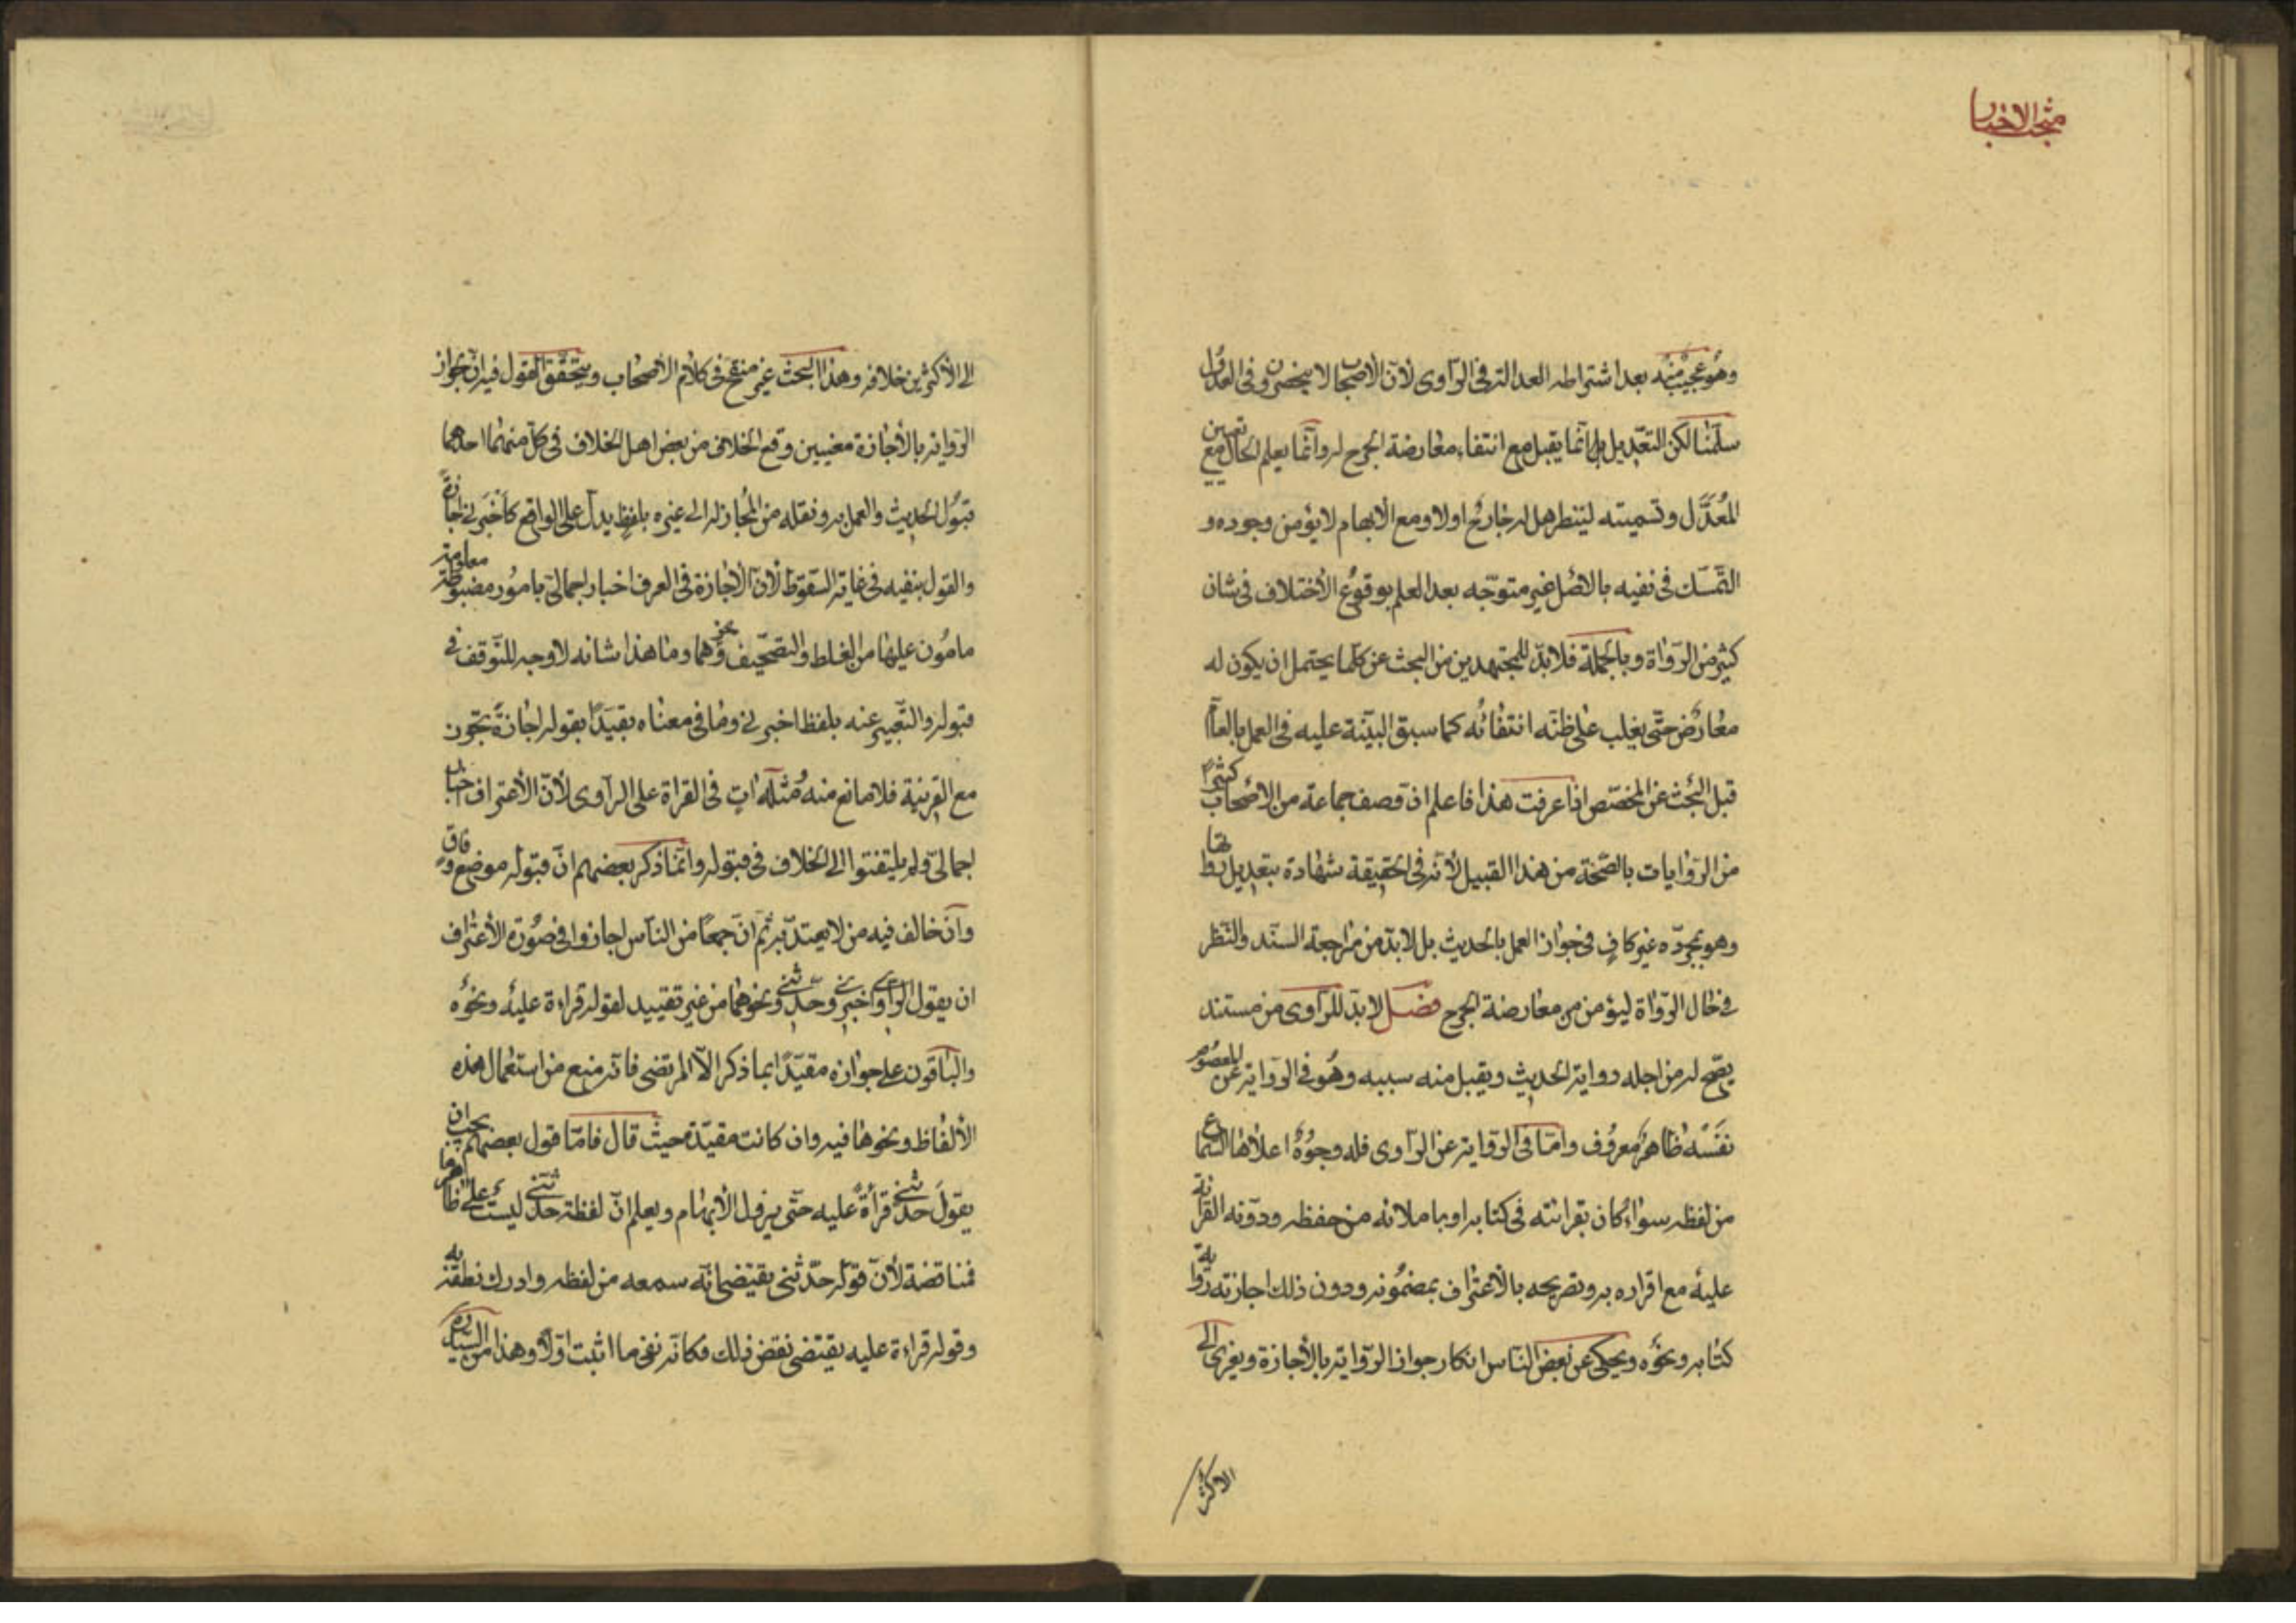 مبحث الاخبار
وهو عجيب منه بعد اشتراطه العدالة فى الراوى لأن الأصحاب لا ينحصرون فى العدول
سلمنا لكن التعديل انما يقبل مع انتفاء معارضة الجرح له وانما يعلم الحال مع تعيين
المعدل وتسميته لينظر هل له جارح اولا ومع الأبهام لا يؤمن وجوده و
التمسك فى نفيه بالأصل غير متوجه بعد العلم بوقوع الأختلاف فى شان
كثير من الرواة وبالجملة فلابد للمجتهدين من البحث عن كلما يحتمل ان يكون له
معارض حتى يغلب على ظنه انتفائه كما سبق البينة عليه فى العمل بالعام
قبل البحث عن المخصص اذا عرفت هذا فاعلم ان وصف جماعة من الاصحاب كثيرا
من الروايات بالصحة من هذا القبيل لأنه فى الحقيقة شهادة بتعديل رواتها
وهو بمجرده غير كاف فى جواز العمل بالحديث بل لابد من مراجعة السند والنظر
فى حال الرواة ليؤمن من معارضة الجرح فصل لابد للراوى من مستند
يصح له من اجله رواية الحديث ويقبل منه سببه وهو فى الرواية عن المعصوم
نفسه ظاهر معروف واما فى الرواية عن الراوى فله وجوه اعلاها السماع
من لفظه سواء كان بقرائته فى كتابه او باملائه من حفظه ودونه القرائة
عليه مع اقراره به وتصريحه بالاعتراف بمضمونه ودون ذلك اجازته رواية
كتابه ونحوه ويحكى عن بعض الناس انكار جواز الرواية بالأجازة ويعزى الى
الاكثر
الى الأكثرين خلافه وهذا البحث غير منقح فى كلام الأصحاب وتحقيق القول فيه ان لجواز
الرواية بالأجازة معنيين وقع الخلاف من بعض اهل الخلاف فى كل منهما احدهما
قبول الحديث والعمل به ونقله من المجاز له الى غيره بلفظ يدل على الواقع كأخبرنى اجازة
والقول بنفيه فى غاية السقوط لأن الأجازة فى العرف اخبار اجمالى بامور مضبوطة معلومة
مامون عليها من الغلط والتصحيف ونحوهما وما هذا شانه لا وجه للتوقف فى
قبوله والتعبير عنه بلفظ اخبرنى وما فى معناه مقيدا بقوله اجازة تجوز
مع القرينة فلا مانع منه ومثله ات فى القراة على الراوى لأن الأعتراف اخبار
اجمالى ولم يلتفتوا الى الخلاف فى قبوله وانما ذكر بعضهم ان قبوله موضع وفاق
وان خالف فيه من لا يعتد به ثم ان جمعا من الناس اجازوا فى صورة الأعتراف
ان يقول الراوى اخبرنى وحدثنى ونحوهما من غير تقييد لقوله قراءة عليه ونحوه
والباقون على جوازه مقيدا بما ذكر الا المرتضى فانه منع من استعمال هذه
الألفاظ ونحوها فيه وان كانت مقيدة حيث قال فاما قول بعضهم يجب ان
يقول حدثنى قرأة عليه حتى يزول الأبهام ويعلم ان لفظة حدثنى ليست على ظاهرها
فمناقضة لأن قوله حدثنى يقتضى انه سمعه من لفظه وادرك نطقه به
وقوله قراءة عليه يقتضى نقض ذلك فكانه نفى ما اثبت اولا وهذا من السيد ره